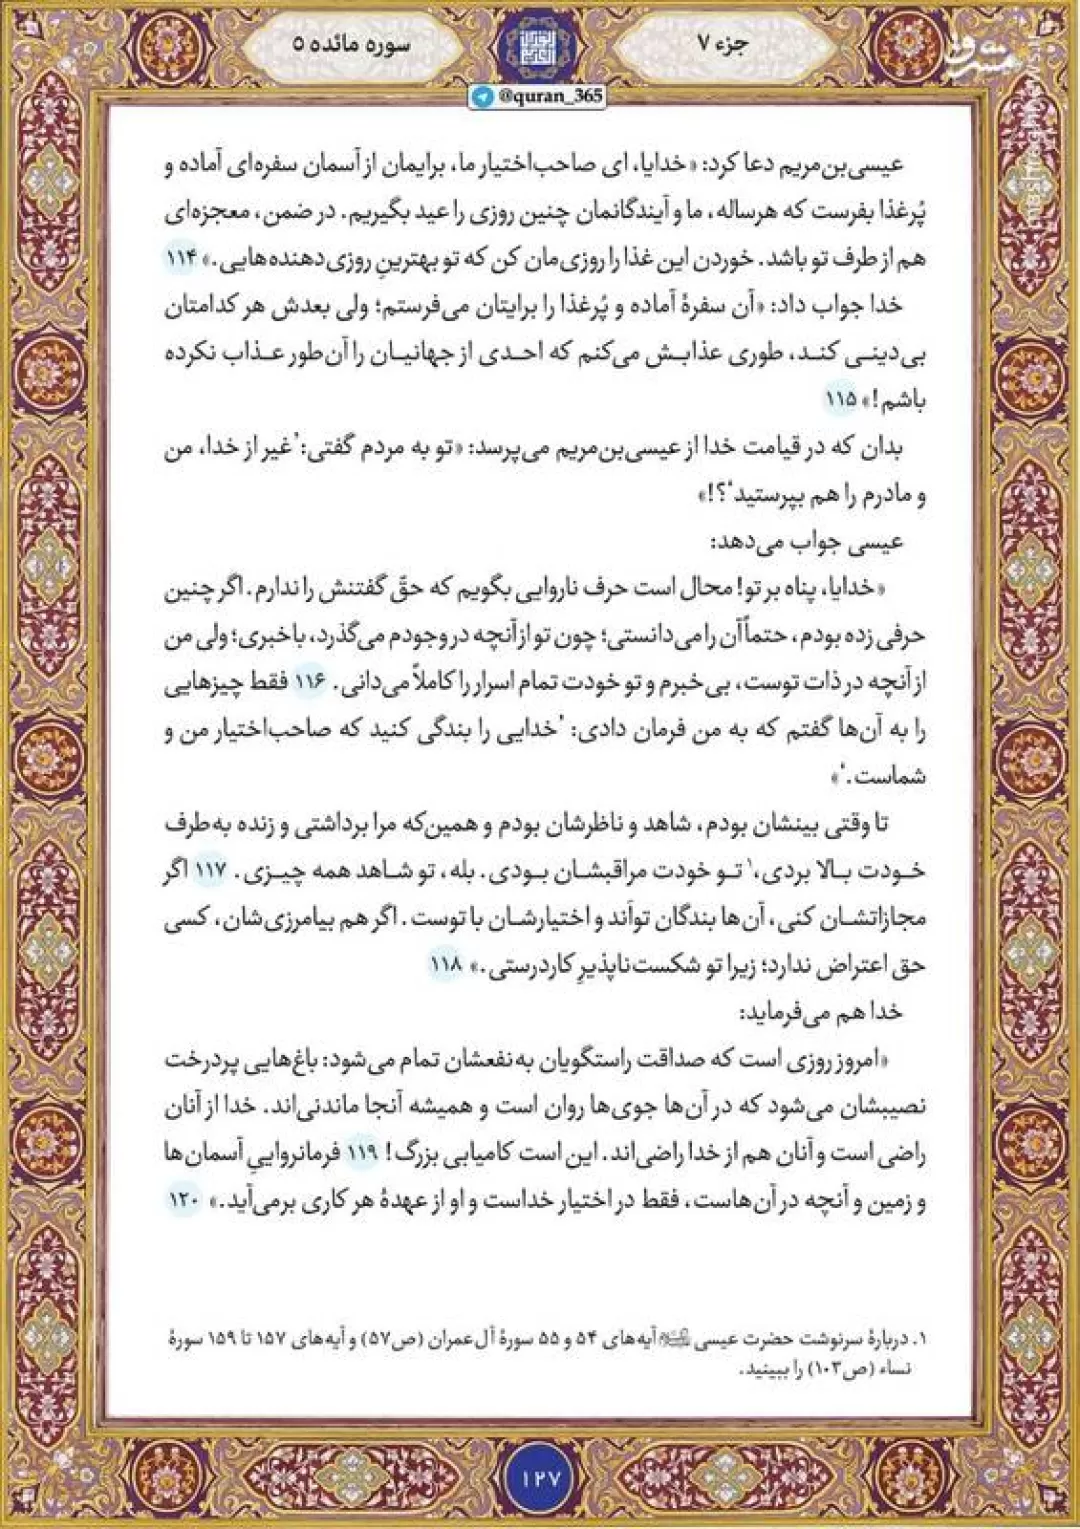 جزء ۷
سوره مائده ۵
مشرق
mashreghnews.ir
@quran_365
عیسی‌بن‌مریم دعا کرد: «خدایا، ای صاحب‌اختیار ما، برایمان از آسمان سفره‌ای آماده و
پُرغذا بفرست که هرساله، ما و آیندگانمان چنین روزی را عید بگیریم. در ضمن، معجزه‌ای
هم از طرف تو باشد. خوردن این غذا را روزی‌مان کن که تو بهترینِ روزی‌دهنده‌هایی.» ۱۱۴
خدا جواب داد: «آن سفرهٔ آماده و پُرغذا را برایتان می‌فرستم؛ ولی بعدش هر کدامتان
بی‌دینی کند، طوری عذابش می‌کنم که احدی از جهانیان را آن‌طور عذاب نکرده
باشم!» ۱۱۵
بدان که در قیامت خدا از عیسی‌بن‌مریم می‌پرسد: «تو به مردم گفتی: ‘غیر از خدا، من
و مادرم را هم بپرستید’؟!»
عیسی جواب می‌دهد:
«خدایا، پناه بر تو! محال است حرف ناروایی بگویم که حقّ گفتنش را ندارم. اگر چنین
حرفی زده بودم، حتماً آن را می‌دانستی؛ چون تو از آنچه در وجودم می‌گذرد، باخبری؛ ولی من
از آنچه در ذات توست، بی‌خبرم و تو خودت تمام اسرار را کاملاً می‌دانی. ۱۱۶ فقط چیزهایی
را به آن‌ها گفتم که به من فرمان دادی: ‘خدایی را بندگی کنید که صاحب‌اختیار من و
شماست.’»
تا وقتی بینشان بودم، شاهد و ناظرشان بودم و همین‌که مرا برداشتی و زنده به‌طرف
خودت بالا بردی،۱ تو خودت مراقبشان بودی. بله، تو شاهد همه چیزی. ۱۱۷ اگر
مجازاتشان کنی، آن‌ها بندگان تواَند و اختیارشان با توست. اگر هم بیامرزی‌شان، کسی
حق اعتراض ندارد؛ زیرا تو شکست‌ناپذیرِ کاردرستی.» ۱۱۸
خدا هم می‌فرماید:
«امروز روزی است که صداقت راستگویان به‌نفعشان تمام می‌شود: باغ‌هایی پردرخت
نصیبشان می‌شود که در آن‌ها جوی‌ها روان است و همیشه آنجا ماندنی‌اند. خدا از آنان
راضی است و آنان هم از خدا راضی‌اند. این است کامیابی بزرگ! ۱۱۹ فرمانرواییِ آسمان‌ها
و زمین و آنچه در آن‌هاست، فقط در اختیار خداست و او از عهدهٔ هر کاری برمی‌آید.» ۱۲۰
۱. دربارهٔ سرنوشت حضرت عیسی آیه‌های ۵۴ و ۵۵ سورهٔ آل‌عمران (ص۵۷) و آیه‌های ۱۵۷ تا ۱۵۹ سورهٔ
نساء (ص۱۰۳) را ببینید.
۱۲۷